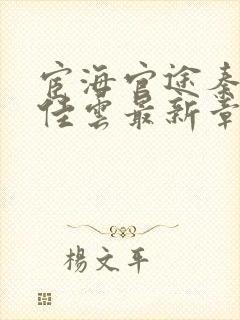 宦海官途秦
佳雲最新章
楊文平